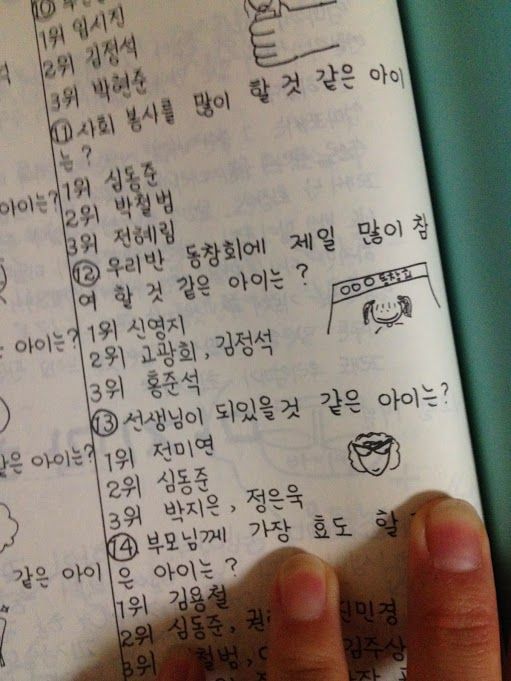 ⑩
1위 임시진
2위 김정석
3위 박현준
⑪ 사회 봉사를 많이 할 것 같은 아이
는?
1위 심동준
2위 박철범
3위 전혜림
⑫ 우리반 동창회에 제일 많이 참
여 할 것 같은 아이는?
○○○동창회
1위 신영지
2위 고광희, 김정석
3위 홍준석
⑬ 선생님이 되있을것 같은 아이는?
1위 전미연
2위 심동준
3위 박지은, 정은욱
⑭ 부모님께 가장 효도 할
은 아이는?
1위 김용철
2위 심동준, 신민경
3위 철범, 김주상
아이는?
아이는?
은 아이는?
같은 아이